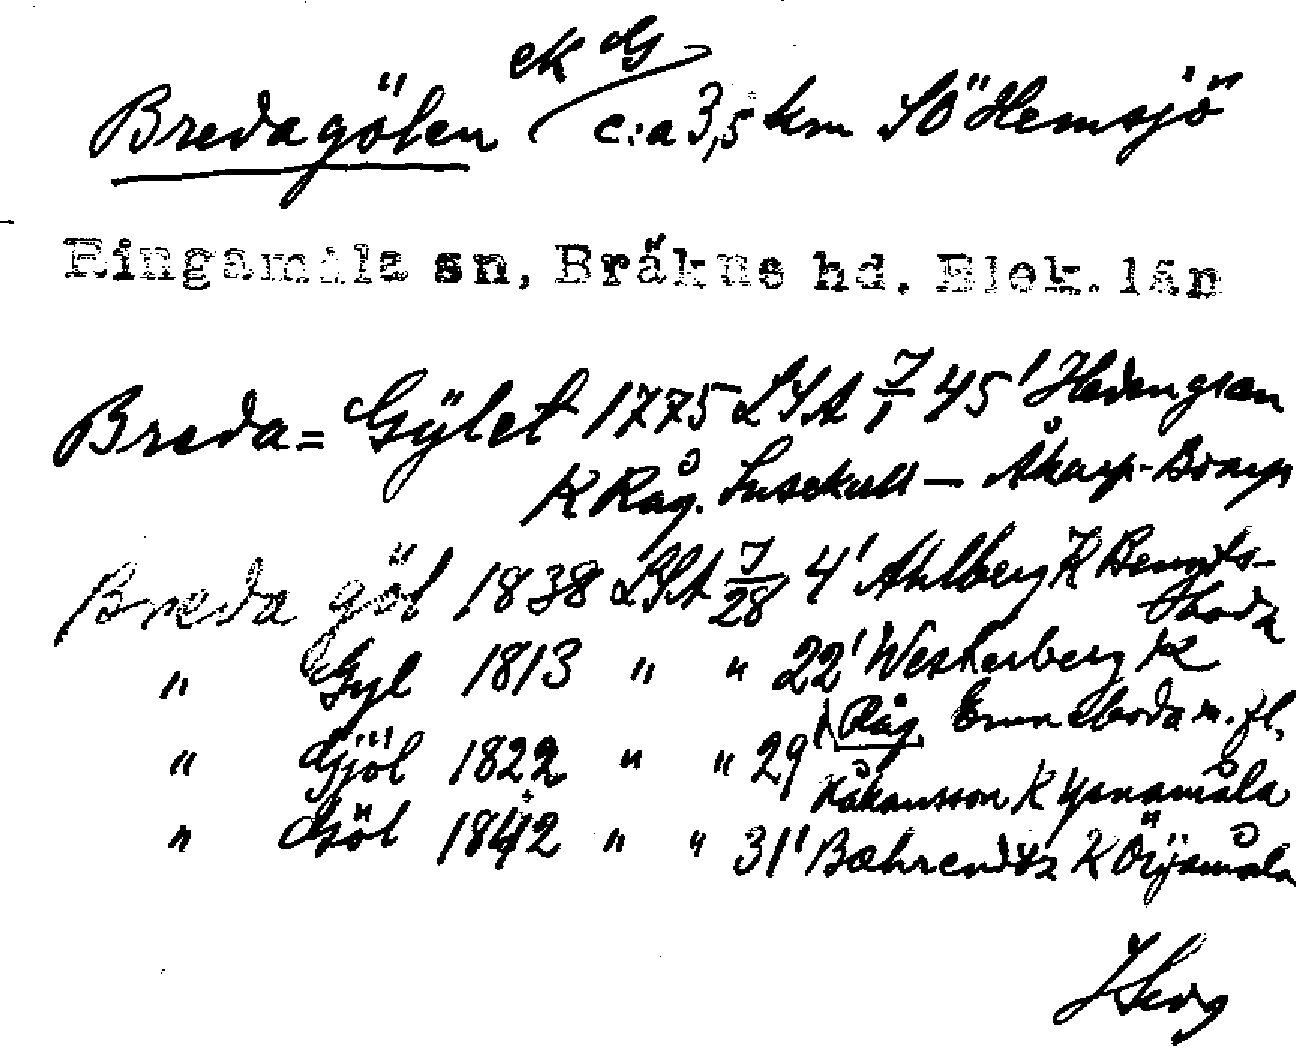 ek G
Bredagölen c:a 3,5 km SÖ Hemsjö
Ringamåla sn, Bräkne hd. Blek. län
Breda= Gÿlet 1775 LSA 7/1 45' Hedengran
K Råg. - Åkarp-
Breda göl 1838 LSA 7/28 4' Ahlberg K Bengts-
boda
" Gyl 1813 " " 22' Westerberg K
Råg. Enneboda m.fl.
" Gjöl 1822 " " 29' Håkansson K
" Göl 1842 " " 31' Bæhrendtz K Örÿamåla